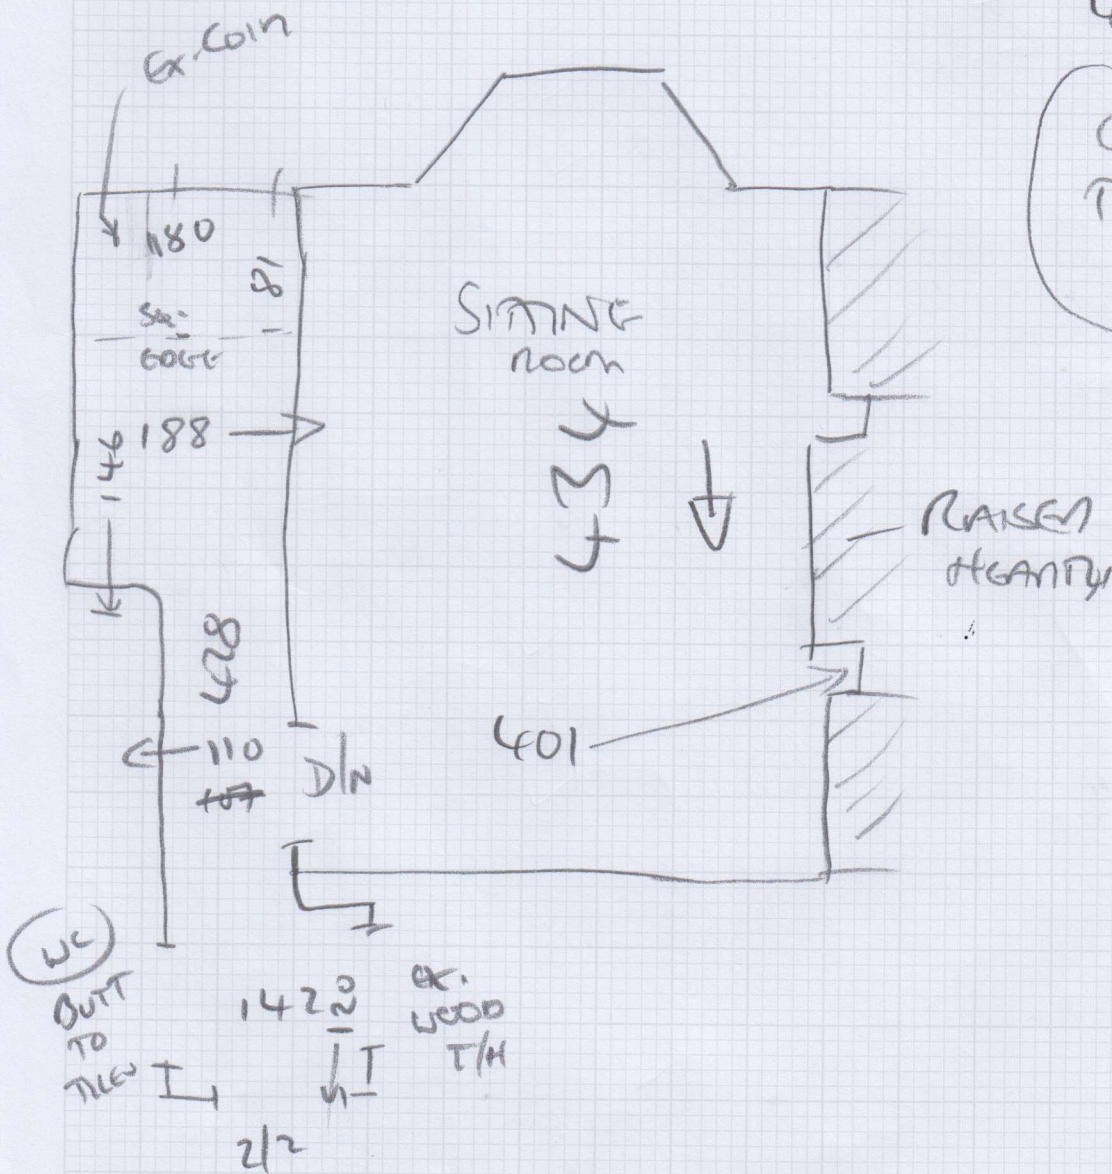 Ex. Coin
180
181
SQ. EDGE
SITTING
ROOM
434
188
146
RAISED
HEARTH
428
401
110
D/N
WC
BUTT
TO
TILES
1420
ex.
WOOD
T/H
2/2